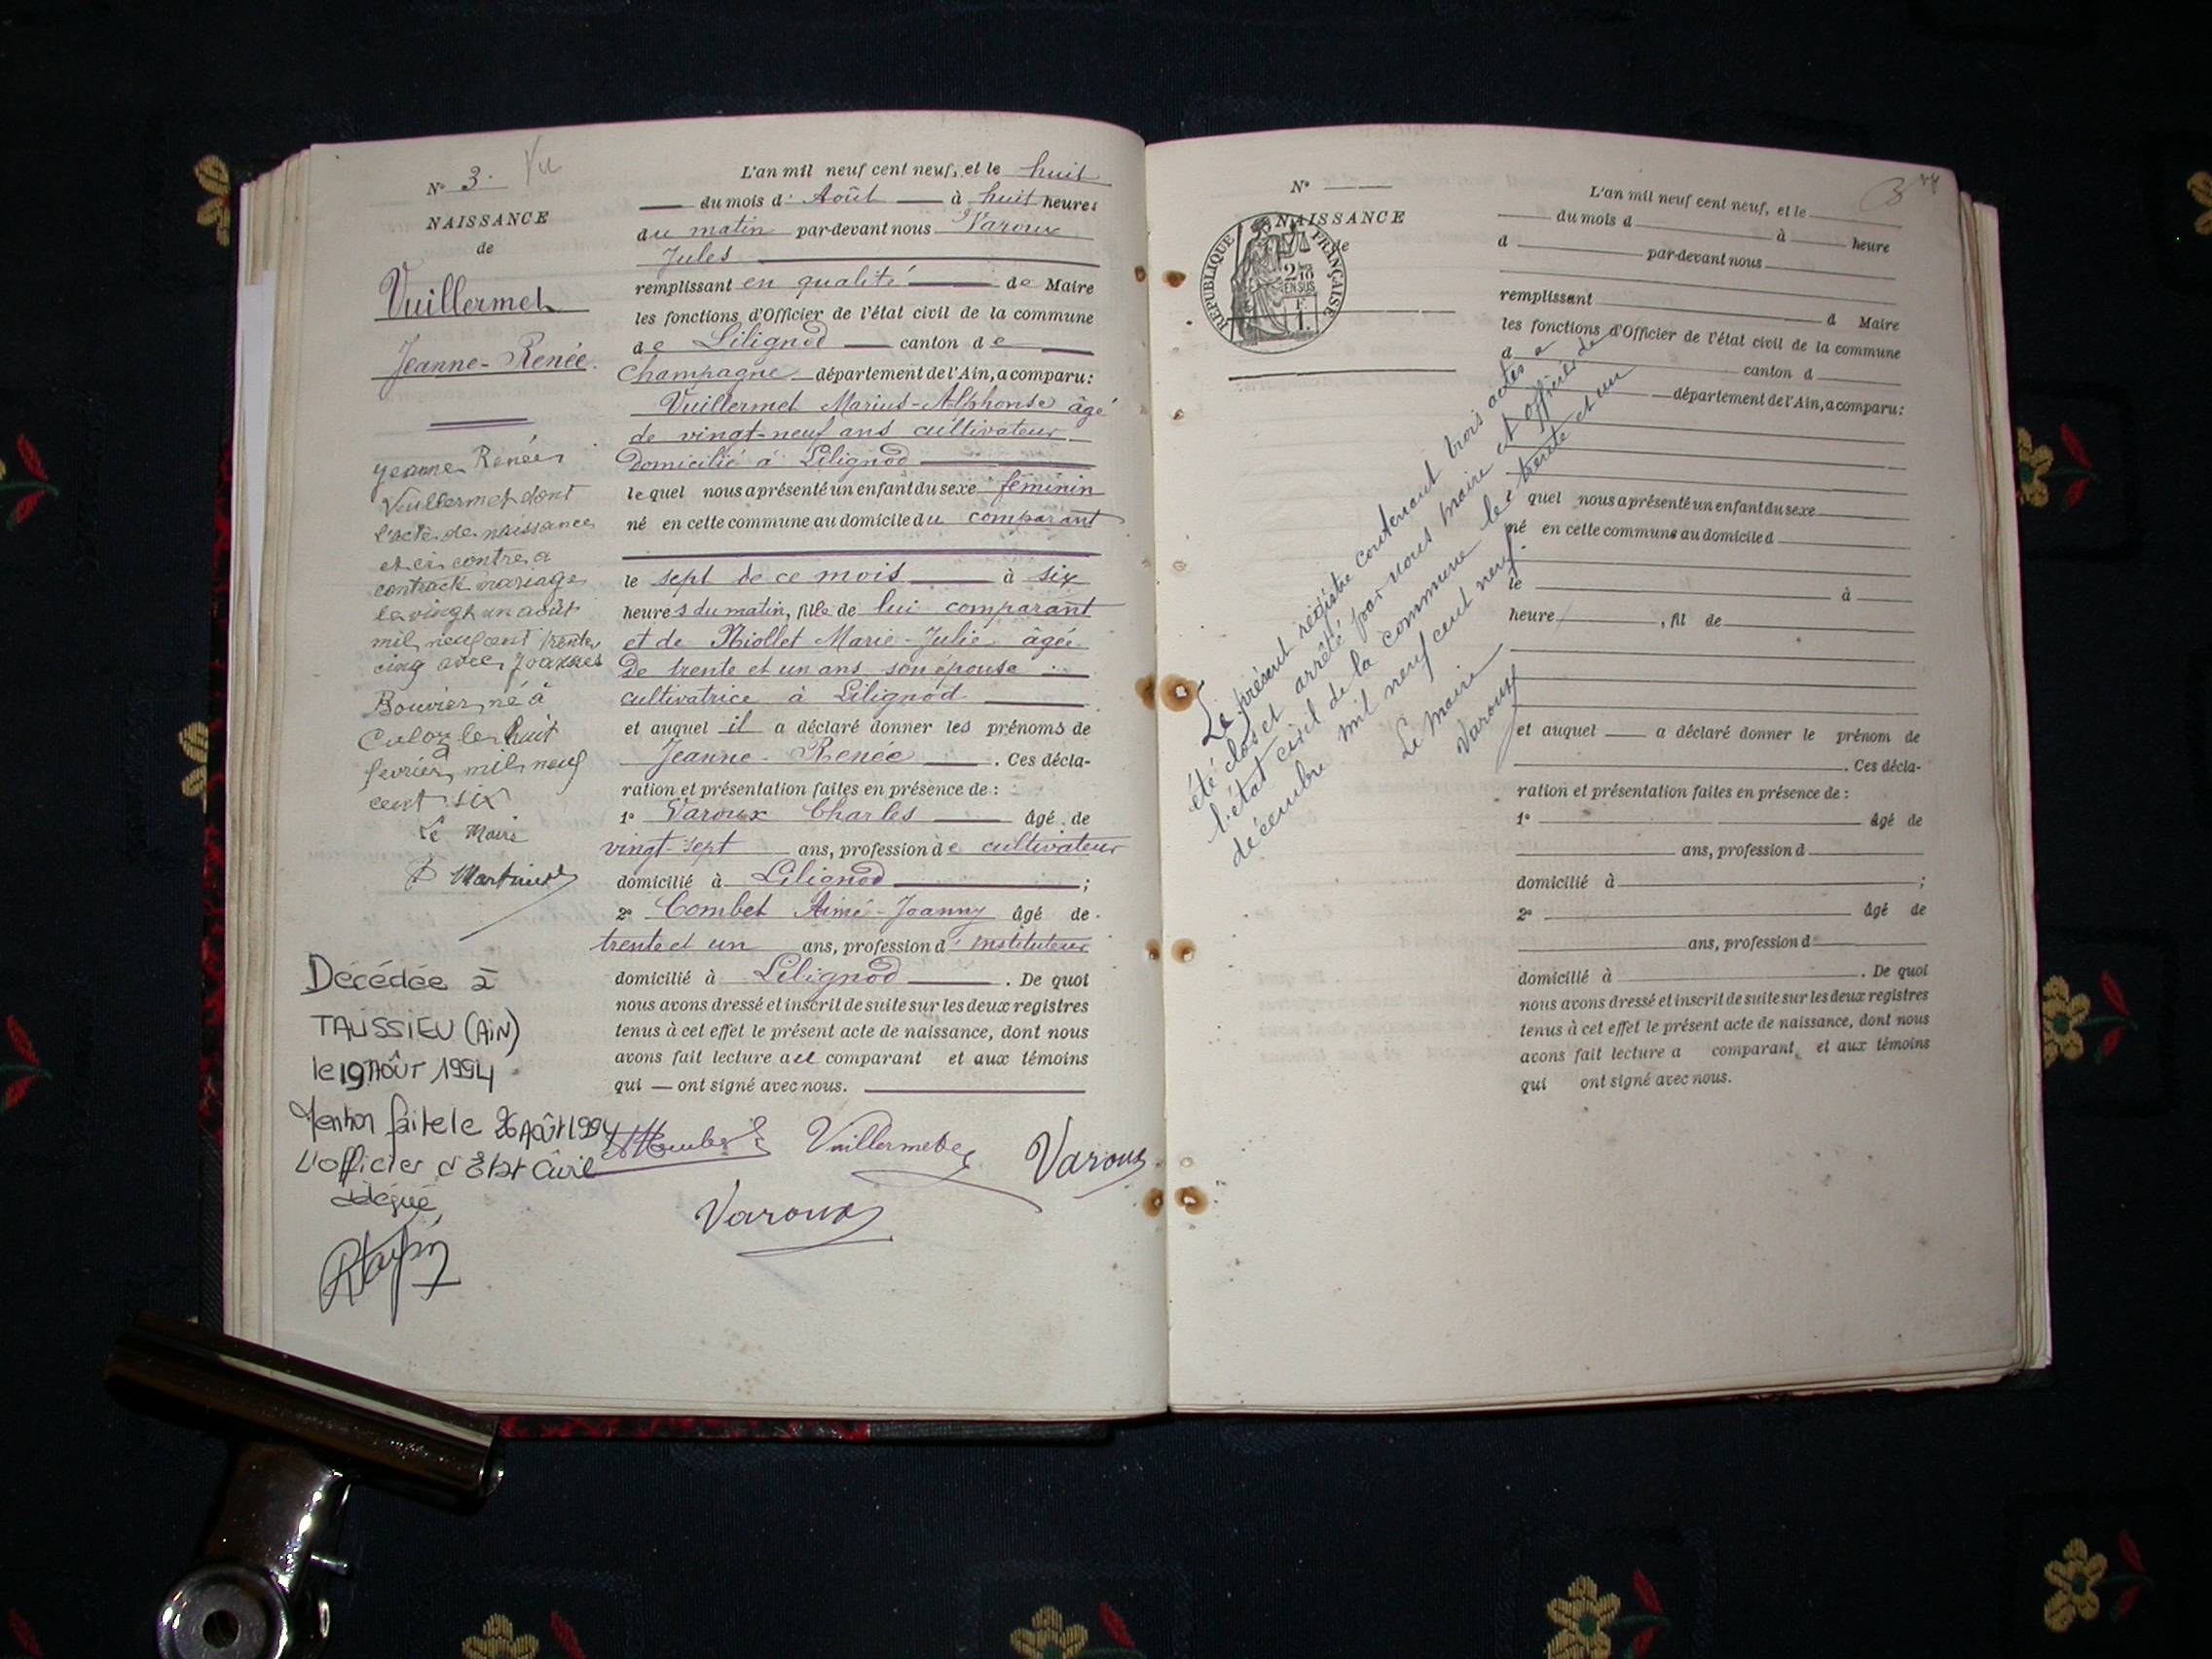 N° 3. Vu
NAISSANCE
de
Vuillermet
Jeanne-Renée.
Jeanne Renée
Vuillermet dont
l'acte de naissance
est ci contre a
contracté mariage
le vingt un août
mil neuf cent trente
cinq avec Joannès
Bouvier né à
Culoz le huit
février mil neuf
cent six
Le Maire
Décédée à
TALISSIEU (AiN)
le 19 AOÛT 1994
Mention faite le 26 AOÛT 1994
L'officier d'Etat Civil
délégué
L'an mil neuf cent neuf, et le huit
du mois d' Août à huit heures
du matin par-devant nous Varoux
Jules
remplissant en qualité de Maire
les fonctions d'Officier de l'état civil de la commune
de Lilignod canton de
Champagne département de l'Ain, a comparu:
Vuillermet Marius-Alphonse âgé
de vingt-neuf ans cultivateur
domicilié à Lilignod
lequel nous a présenté un enfant du sexe féminin
né en cette commune au domicile du comparant
le sept de ce mois à six
heures du matin, fille de lui comparant
et de Thiollet Marie-Julie âgée
de trente et un ans son épouse
cultivatrice à Lilignod
et auquel il a déclaré donner les prénoms de
Jeanne-Renée. Ces décla-
ration et présentation faites en présence de :
1° Varoux Charles âgé de
vingt-sept ans, profession de cultivateur
domicilié à Lilignod ;
2° Combet Aimé-Joanny âgé de
trente et un ans, profession d'instituteur
domicilié à Lilignod. De quoi
nous avons dressé et inscrit de suite sur les deux registres
tenus à cet effet le présent acte de naissance, dont nous
avons fait lecture au comparant et aux témoins
qui — ont signé avec nous.
Vuillermet Varoux
Varoux
N°
NAISSANCE
de
REPUBLIQUE FRANÇAISE
2/10
EN SUS
F.
1.
Le présent registre contenant trois actes a
été clos et arrêté par nous maire et officier de
l'état civil de la commune le trente et un
décembre mil neuf cent neuf.
Le Maire
Varoux
L'an mil neuf cent neuf, et le
du mois d à heure
d par-devant nous
remplissant d Maire
les fonctions d'Officier de l'état civil de la commune
d canton d
département de l'Ain, a comparu:
quel nous a présenté un enfant du sexe
né en cette commune au domicile d
le à
heure , fil de
et auquel a déclaré donner le prénom de
. Ces décla-
ration et présentation faites en présence de :
1° âgé de
ans, profession d
domicilié à ;
2° âgé de
ans, profession d
domicilié à . De quoi
nous avons dressé et inscrit de suite sur les deux registres
tenus à cet effet le présent acte de naissance, dont nous
avons fait lecture a comparant, et aux témoins
qui ont signé avec nous.